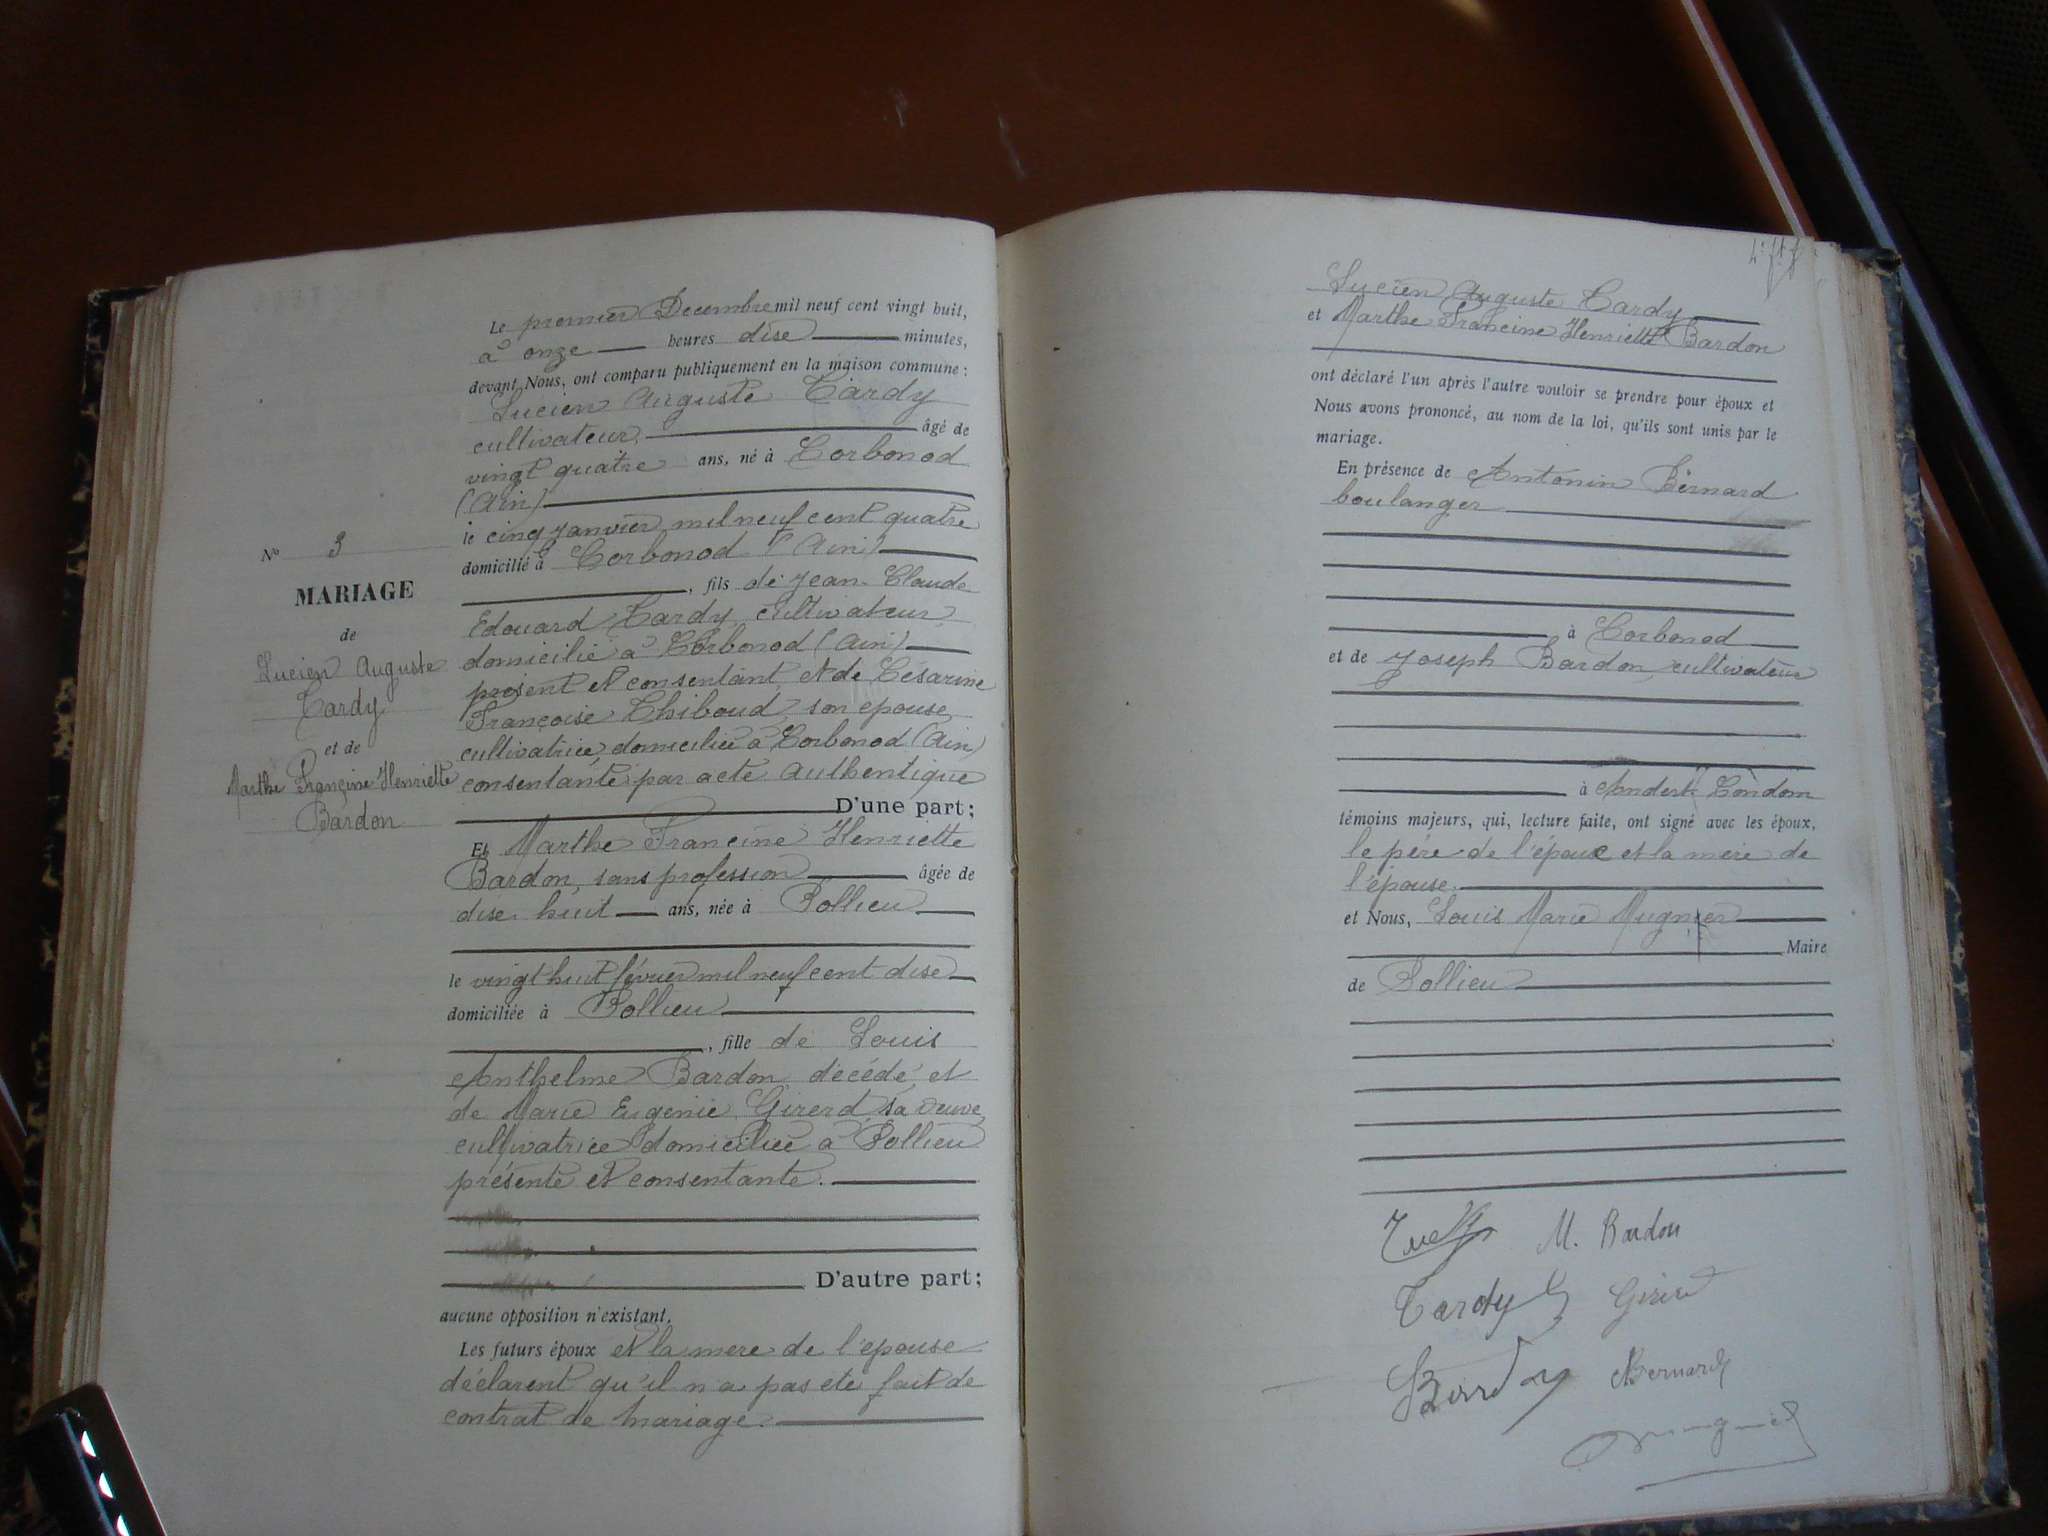 Nº 3
MARIAGE
de
Lucien Auguste
Tardy
et de
Marthe Francine Henriette
Bardon
Le premier Decembre mil neuf cent vingt huit,
à onze heures dise minutes,
devant Nous, ont comparu publiquement en la maison commune :
Lucien Auguste Tardy
cultivateur âgé de
vingt quatre ans, né à Corbonod
(Ain)
le cinq janvier mil neuf cent quatre
domicilié à Corbonod (Ain)
, fils de Jean Claude
Edouard Tardy cultivateur
domicilié à Corbonod (Ain)
présent et consentant et de Césarine
Françoise Thiboud, son épouse,
cultivatrice, domiciliée à Corbonod (Ain)
consentante par acte authentique
D'une part ;
Et Marthe Francine Henriette
Bardon, sans profession âgée de
dise huit ans, née à Pollieu
le vingt huit février mil neuf cent dise
domiciliée à Pollieu
, fille de Louis
Anthelme Bardon, décédé, et
de Marie Eugénie Girerd, sa veuve,
cultivatrice domiciliée à Pollieu
présente et consentante.
D'autre part ;
aucune opposition n'existant.
Les futurs époux et la mere de l'epouse
déclarent qu'il n'a pas ete fait de
contrat de mariage.
Lucien Auguste Tardy
et Marthe Francine Henriette Bardon
ont déclaré l'un après l'autre vouloir se prendre pour époux et
Nous avons prononcé, au nom de la loi, qu'ils sont unis par le
mariage.
En présence de Antonin Bernard
boulanger
à Corbonod
et de Joseph Bardon, cultivateur
à Andert Condom
témoins majeurs, qui, lecture faite, ont signé avec les époux,
le père de l'époux et la mère de
l'épouse.
et Nous, Louis Marie Mugnier
Maire
de Pollieu
M. Bardon
Tardy
Girerd
Bernard